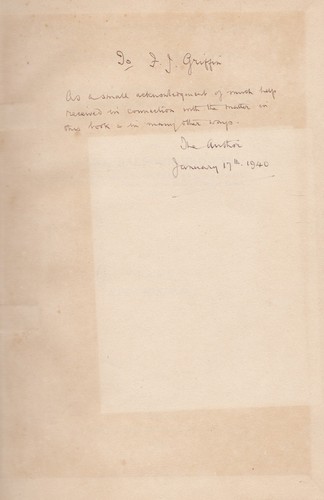 To F. J. Griffin
As a small acknowledgement of much help
received in connection with the matter in
this book & in many other ways.
The Author
January 17th. 1940